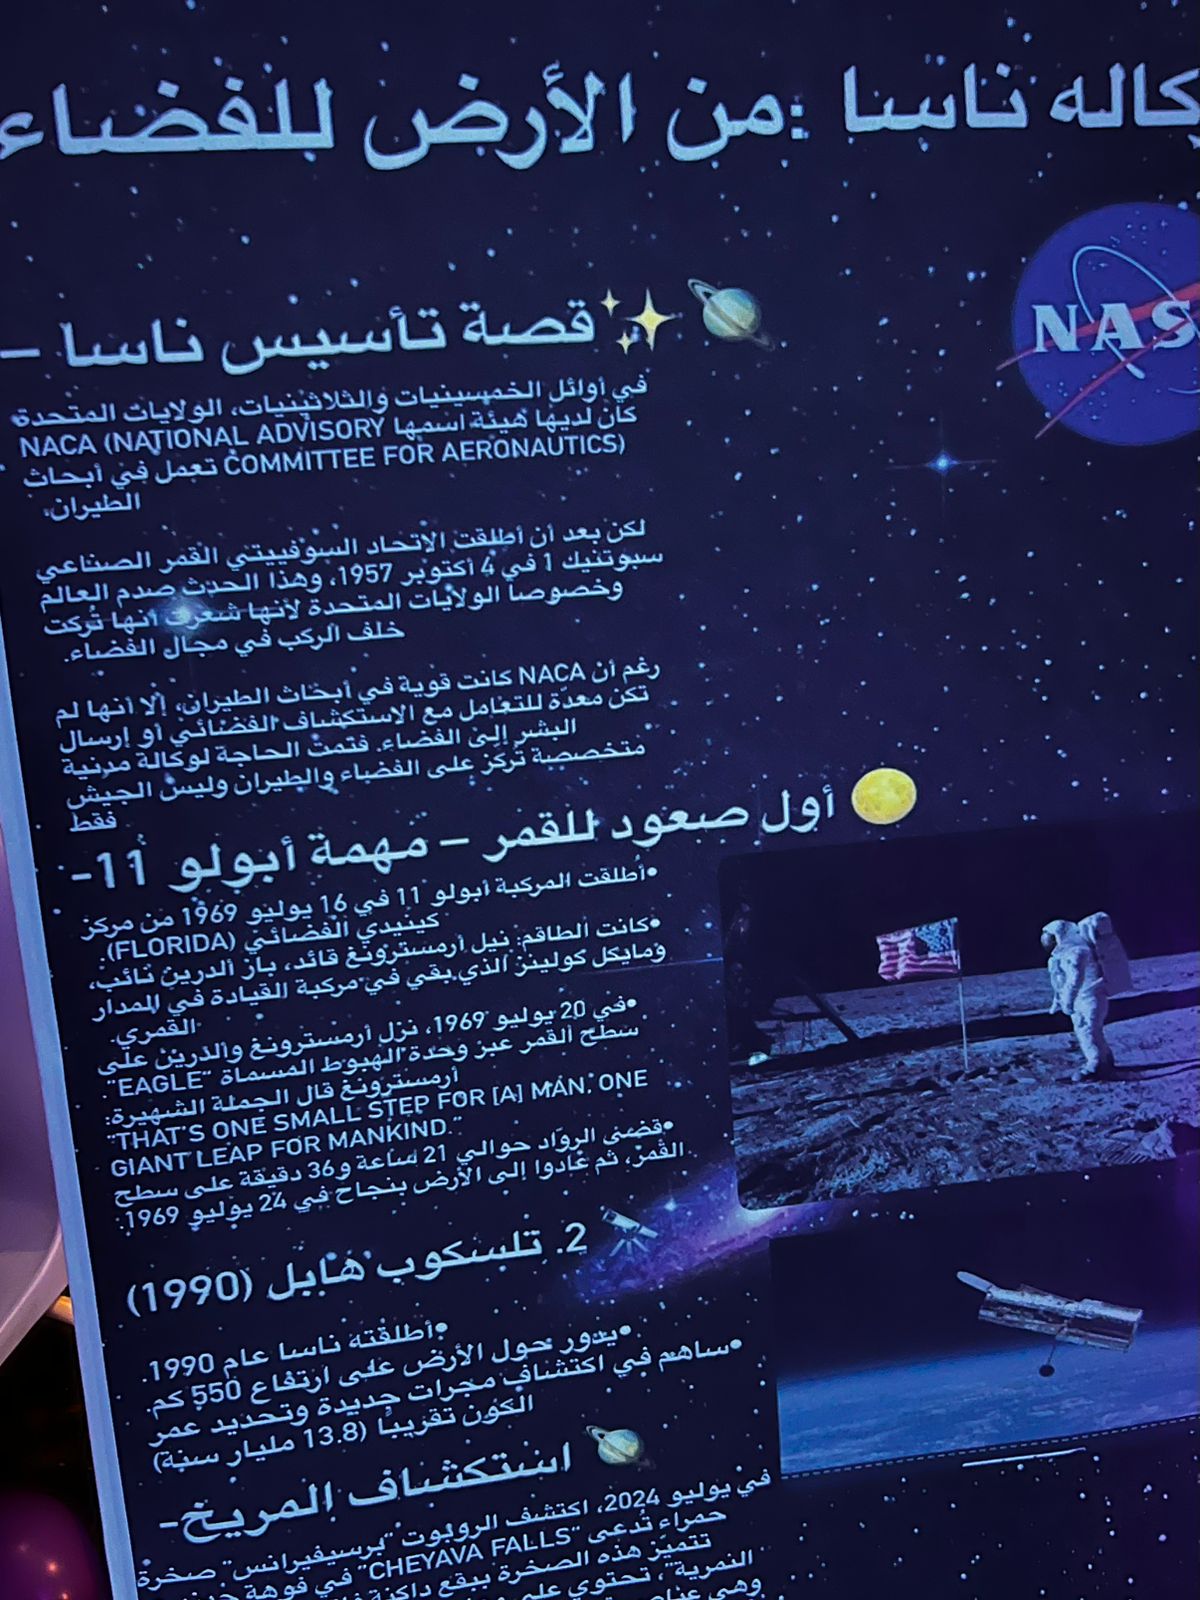 وكاله ناسا :من الأرض للفضاء
NASA
قصة تأسيس ناسا –
في أوائل الخمسينيات والثلاثينيات، الولايات المتحدة
كان لديها هيئة اسمها NACA (NATIONAL ADVISORY
COMMITTEE FOR AERONAUTICS) تعمل في أبحاث
الطيران.
لكن بعد أن أطلقت الاتحاد السوفييتي القمر الصناعي
سبوتنيك 1 في 4 أكتوبر 1957، وهذا الحدث صدم العالم
وخصوصا الولايات المتحدة لأنها شعرت أنها تُركت
خلف الركب في مجال الفضاء.
رغم أن NACA كانت قوية في أبحاث الطيران، إلا أنها لم
تكن معدّة للتعامل مع الاستكشاف الفضائي أو إرسال
البشر إلى الفضاء. فتمت الحاجة لوكالة مدنية
متخصصة تركّز على الفضاء والطيران وليس الجيش
فقط
أول صعود للقمر – مهمة أبولو 11-
•أطلقت المركبة أبولو 11 في 16 يوليو 1969 من مركز
كينيدي الفضائي (FLORIDA).
•كانت الطاقم: نيل أرمسترونغ قائد، باز ألدرين نائب،
ومايكل كولينز الذي بقي في مركبة القيادة في المدار
القمري.
•في 20 يوليو 1969، نزل أرمسترونغ وألدرين على
سطح القمر عبر وحدة الهبوط المسماة "EAGLE".
أرمسترونغ قال الجملة الشهيرة:
"THAT'S ONE SMALL STEP FOR [A] MAN, ONE
GIANT LEAP FOR MANKIND."
•قضى الروّاد حوالي 21 ساعة و36 دقيقة على سطح
القمر، ثم عادوا إلى الأرض بنجاح في 24 يوليو 1969.
2. تلسكوب هابل (1990)
•أطلقته ناسا عام 1990.
•يدور حول الأرض على ارتفاع 550 كم.
•ساهم في اكتشاف مجرات جديدة وتحديد عمر
الكون تقريبًا (13.8 مليار سنة)
استكشاف المريخ-
في يوليو 2024، اكتشف الروبوت "برسيفيرانس" صخرة
حمراء تُدعى "CHEYAVA FALLS" في فوهة
تتميّز هذه الصخرة ببقع داكنة
النمرية"، تحتوي على
وهي